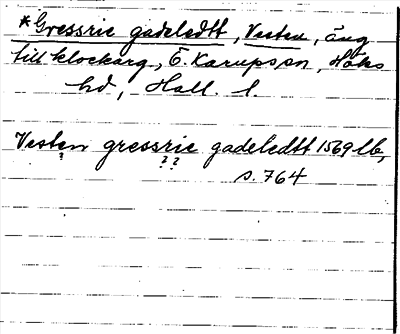 *Gressrie gadeledtt, Vesten, äng
till klockarg., Ö. Karups sn, Höks
hd, Hall. l.
Vesten gressrie gadeledtt 1569 lb,
? ? ?
s. 764